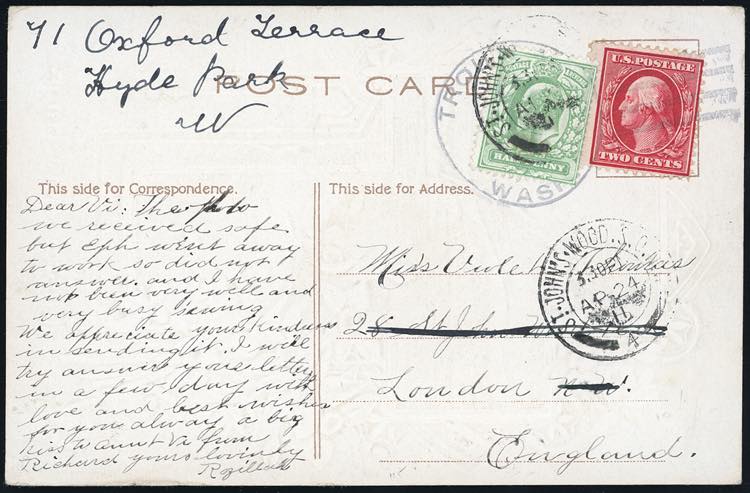 71 Oxford Terrace
Hyde Park
W
POST CARD
U.S. POSTAGE
TWO CENTS
HALFPENNY
WASH
ST. JOHN'S WOOD
3.30 PM
AP 24
11
4
This side for Correspondence.
This side for Address.
Dear Vi: The photo
we received safe
but Eph went away
to work so did not
answer. and I have
not been very well and
very busy sewing
We appreciate your kindness
in sending it. I will
try answer your letter
in a few day with
love and best wishes
for you alway a big
Kiss to aunt Va from
Richard yours lovinly
Miss Thomas
28 St John
London N.W.
England.